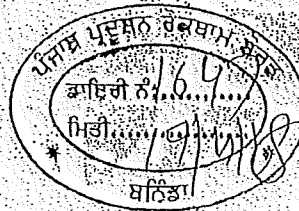 ਪੰਜਾਬ ਪ੍ਰਦੂਸ਼ਨ ਰੋਕਥਾਮ ਬੋਰਡ
ਡਾਇਰੀ ਨੰ:164
ਮਿਤੀ
ਬਠਿੰਡਾ